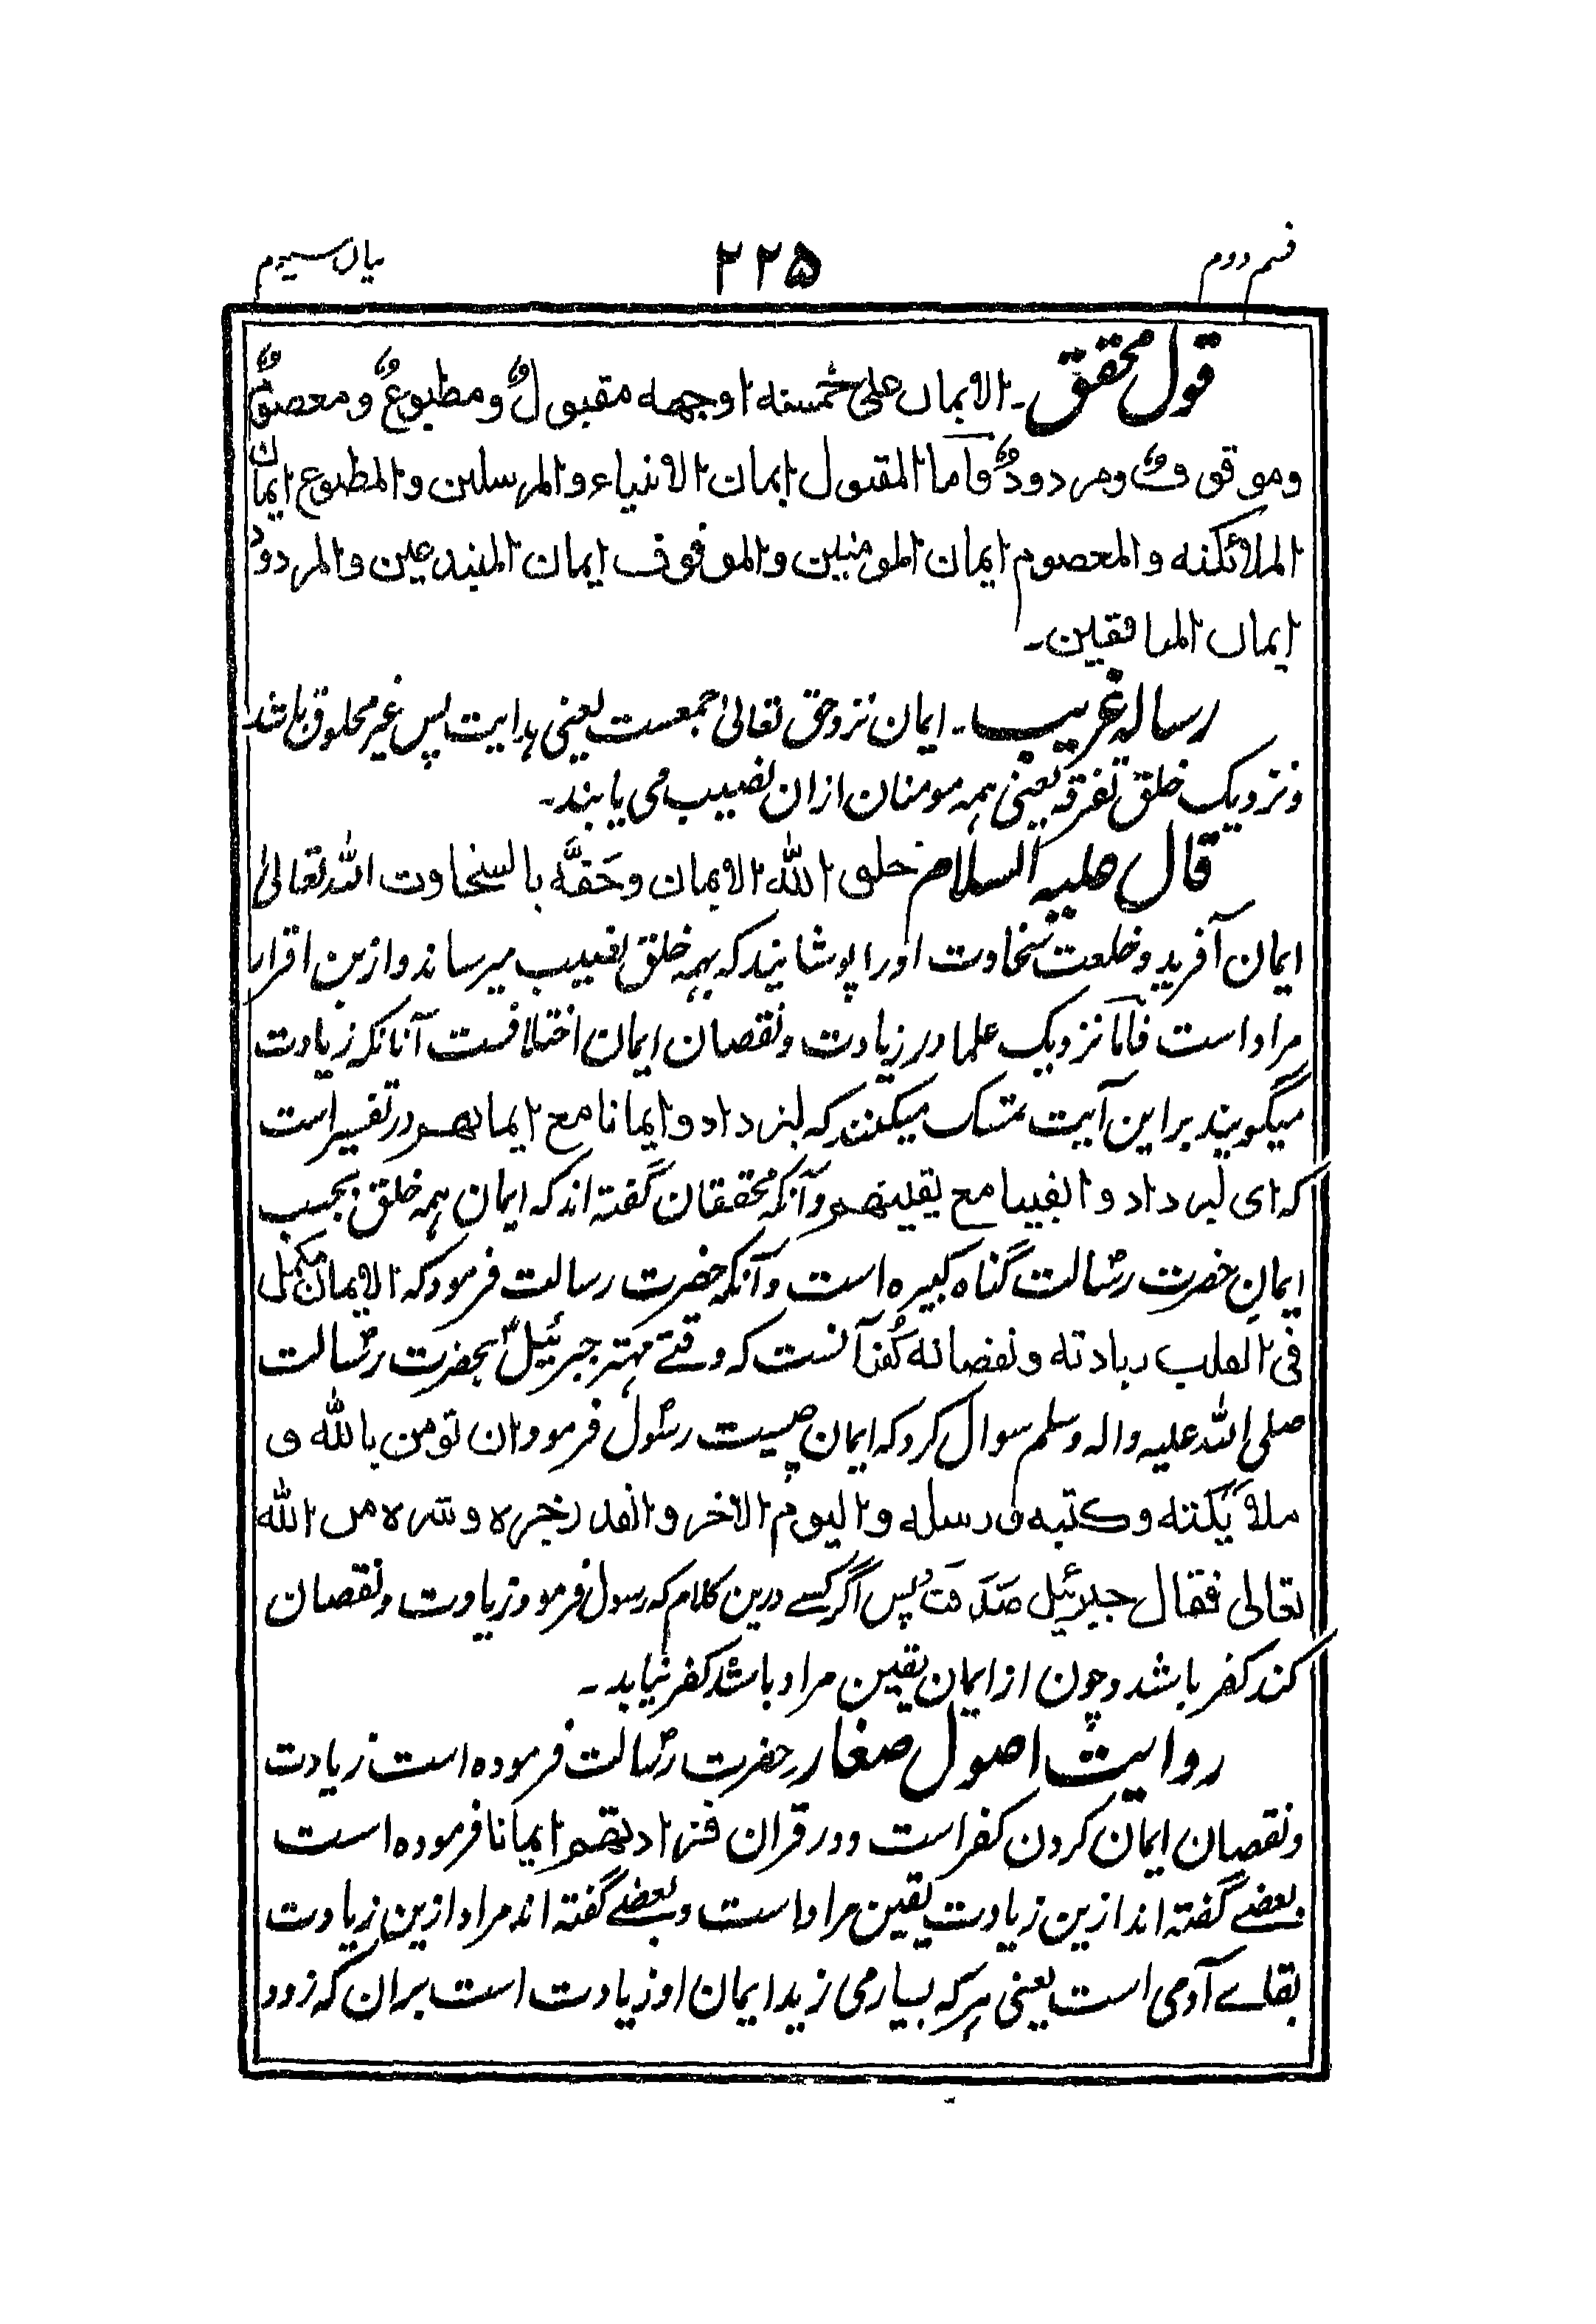 قسم دوم ۲۲۵ بیان سیوم
قول محقق۔ الایمان علی خمسة اوجهه مقبولٌ و مطبوعٌ و معصومٌ
و موقوفٌ و مردودٌ فاما المقبول ایمان الانبیاء و المرسلین و المطبوع ایمان
الملائکته و المعصوم ایمان المومنین و الموقوف ایمان المبتدعین و المردود
ایمان المنافقین۔
رساله غریب۔ ایمان نزد حق تعالیٰ جمعست یعنی هدایت پس غیر مخلوق باشد
و نزدیک خلق تفرقه یعنی همه مومنان ازان نصیب می یابند۔
قال علیه السلام خلق الله الایمان و حَفَّه بالسخاوت الله تعالیٰ
ایمان آفرید و خلعت سخاوت او را پوشانید که بهمه خلق نصیب میرساند و ازین اقرار
مراد است فاما نزدیک علما در زیادت و نقصان ایمان اختلافست آنانکه زیادت
میگویند بر این آیت تمسک میکنند که لیزدادوا ایمانا مع ایمانهم در تفسیر است
که ای لیزدادوا یقینا مع یقینهم و آنکه محققان گفته اند که ایمان همه خلق بحسب
ایمان حضرت رسالت گناه کبیره است و آنکه حضرت رسالت فرمود که الایمان مکمل
فی القلب زیادته و نقصانه کفرٌ آنست که وقتے مهتر جبرئیلؑ بحضرت رسالت
صلی الله علیه و اله و سلم سوال کرد که ایمان چیست رسول فرمود ان تومن بالله و
ملائکته و کتبه و رسله و الیوم الاخر و القدر خیره و شره من الله
تعالی فقال جبرئیل صَدَقتَ پس اگر کسے درین کلام که رسول فرمود زیادت و نقصان
کند کفر باشد و چون از ایمان یقین مراد باشد کفر نیاید۔
روایت اصول صغار حضرت رسالت فرموده است زیادت
و نقصان ایمان کردن کفر است و در قران فزادتهم ایمانا فرموده است
بعضے گفته اند ازین زیادت یقین مراد است و بعضے گفته اند مراد ازین زیادت
بقاے آدمی است یعنی هر که بسیار می زید ایمان او زیادت است بران که زود